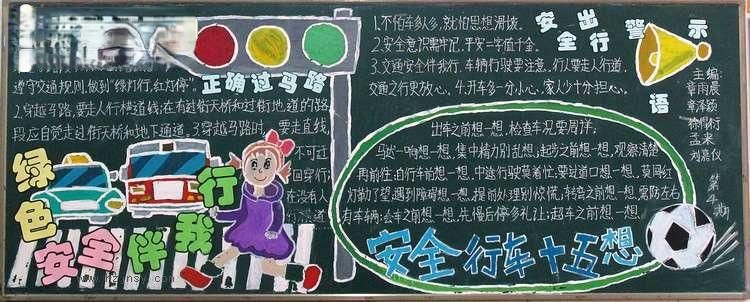 正确过马路
遵守交通规则,做到“绿灯行,红灯停”。
2.穿越马路,要走人行横道线;在有过街天桥和过街地道的路
段应自觉走过街天桥和地下通道。3.穿越马路时,要走直线,
不可迂
回穿行;
在没有人
行横道
绿色
安全伴我行
1.不怕车多人多,就怕思想滑坡。
2.安全意识需牢记,平安二字值千金。
3.交通安全伴我行.车辆行驶要注意。行人要走人行道,
交通之行更放心。4.开车多一分小心,家人少十分担心。
安全出行警示语
主编:
章雨晨
章泽颖
孟来
刘嘉仪
第4期
出车之前想一想,检查车况要周详;
马达一响想一想,集中精力别乱想;起步之前想一想,观察清楚
再前往;自行车前想一想,中途行驶莫着忙;要过道口想一想,莫闯红
灯勤了望;遇到障碍想一想,提前处理别惊慌;转弯之前想一想,需防左右
有车辆;会车之前想一想,先慢后停多礼让;超车之前想一想
安全行车十五想